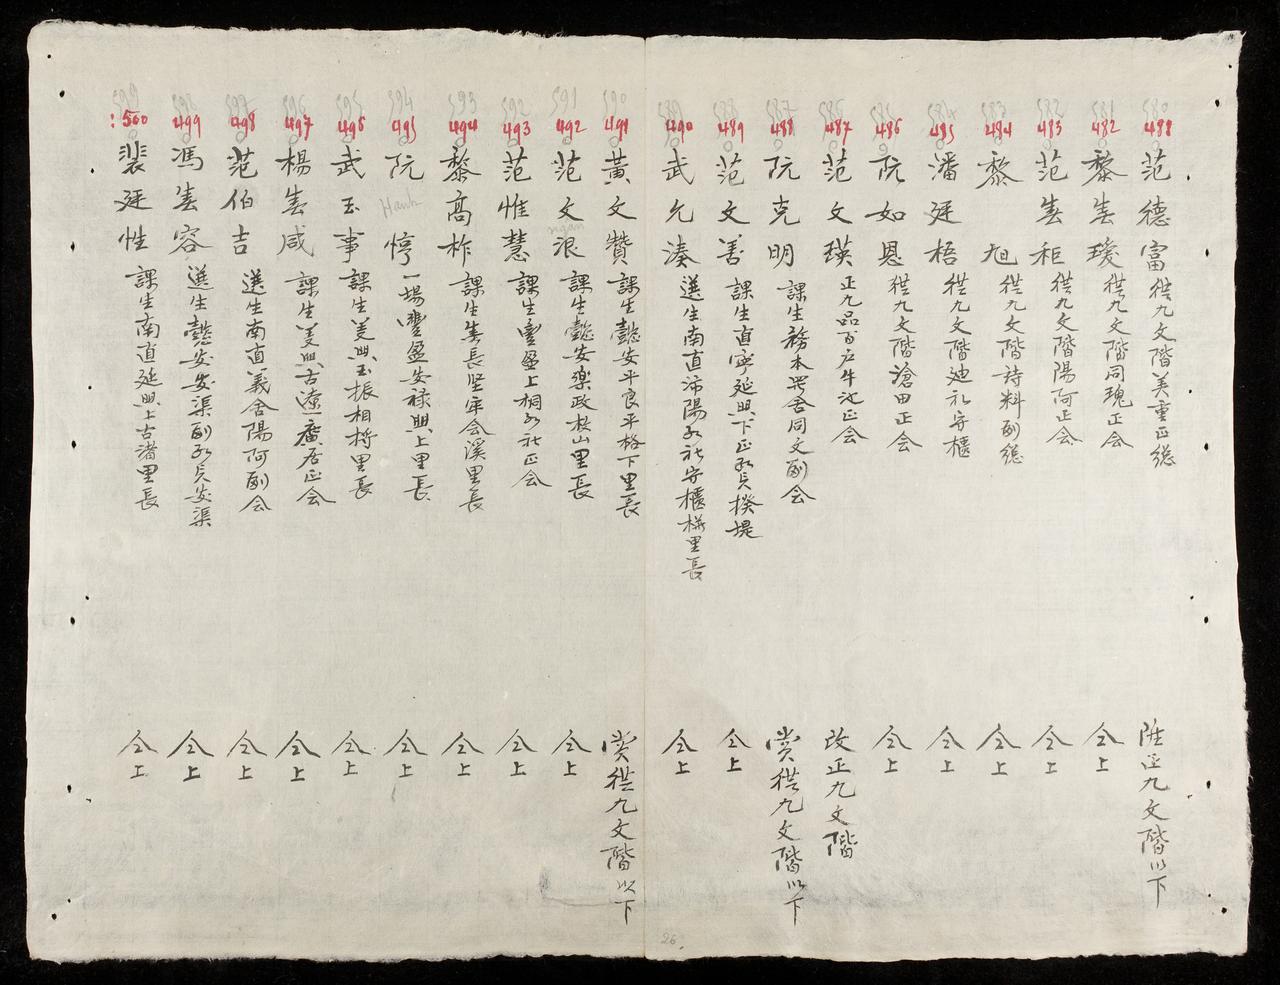 范德富 從九文階美重正總 陞正九文階以下
482 黎春瓊 從九文階同瑰正会 仝上
483 范春秬 從九文階陽阿正会 仝上
484 黎旭 從九文階詩料副總 仝上
485 潘廷梧 從九文階廸礼守櫃 仝上
486 阮如恩 從九文階滄田正会 仝上
487 范文瑛 正九品百户牛池正会 改正九文階
488 阮克明 課生務本畧舍同文副会 賞從九文階以下
489 范文善 課生直寧延興下正永兵揆堤 仝上
490 武允湊 選生南直沛陽永社守櫃権里長 仝上
491 黃文贊 課生懿安平良平格下里長 賞從九文階以下
492 范文浪 ngan 課生懿安樂政松山里長 仝上
493 范惟慧 課生豊盈上桐永社正会 仝上
494 黎高柞 課生春長坚牢会溪里長 仝上
495 阮悙 Hanh 一場豊盈安祿興上里長 仝上
496 武玉事 課生美興玉振相栘里長 仝上
497 楊春咸 課生美興古遼廣居正会 仝上
498 范伯吉 選生南直義舍陽阿副会 仝上
499 馮春容 選生懿安安渠副永兵安渠 仝上
500 裴廷性 課生南直延興上古渚里長 仝上
26